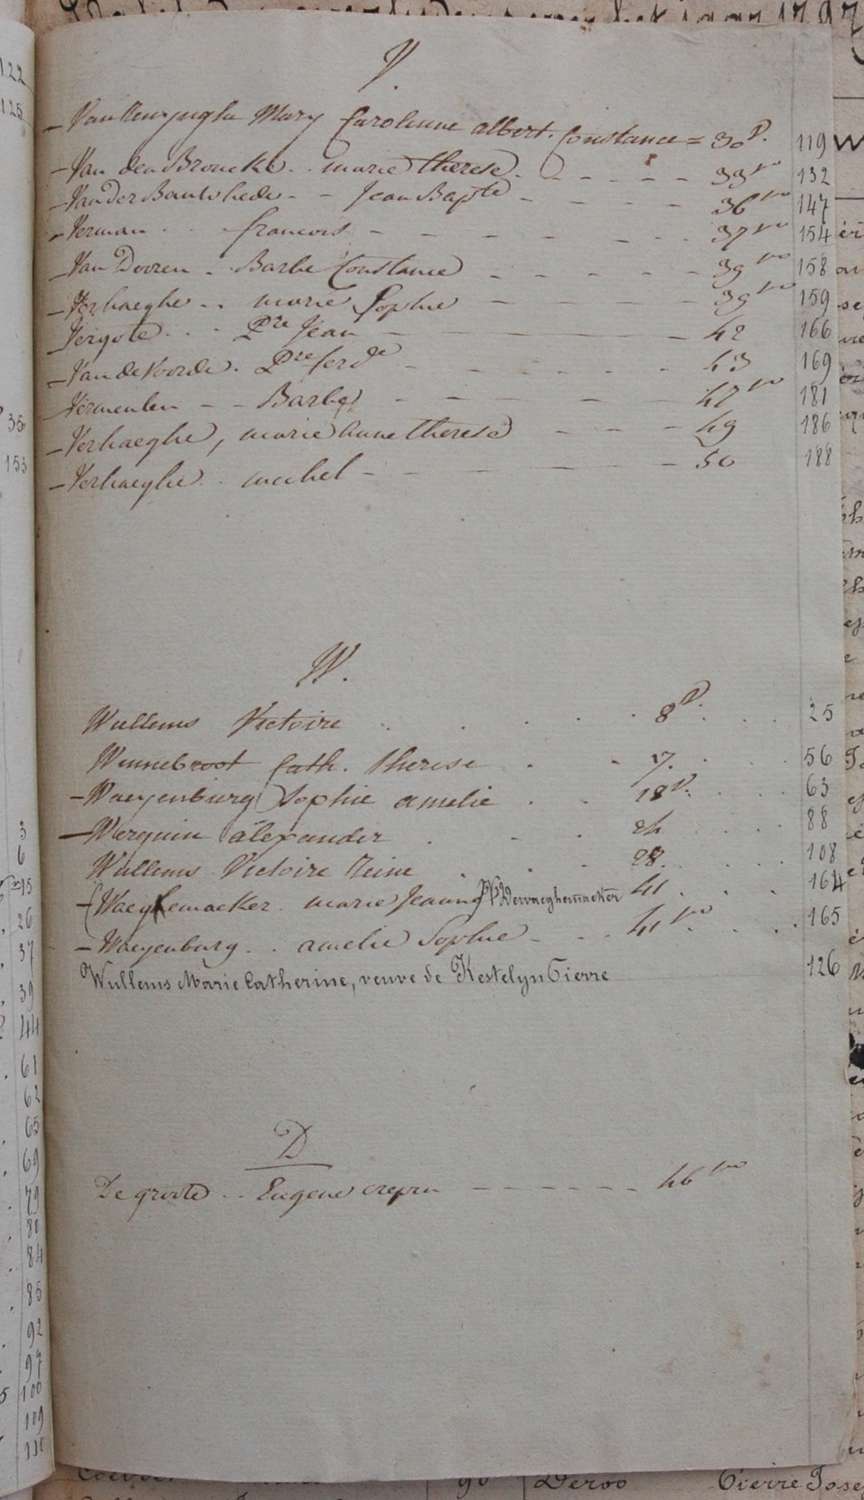 V.
– Mary Carolinne albert. Constance = 30 V. 119
– Van den Broucke . . marie therese . – – – – 33 vo 132
– Van Der Jean Bapte – – – – 36 vo 147
– Verman . . . francois . – – – – – – – 37 vo 154
– Van Dooren . Barbe Constance – – – – 39 vo 158
– Verhaeghe . . marie Sophie – – – – 39 vo 159
Vergote . . . Pre Jean – – – – – – 42 166
– Van de Voorde . Pre ferde – – – – – – 43 169
– Vermeulen – – Barbe – – – – – – 47 vo 181
– Verhaeghe, marie anne therese – – – – 49 186
– Verhaeghe . . michel – – – – – – – – 50 188
W.
Wullems Victoire . . . . . 8 V. . . . 25
Winnebroot Cath. therese . . 17. . . . 56
– Waeyenburg Sophie amelie . . 18 V. . . . 63
– Werquin alexander . . . . 24 . . . 88
Wullems Victoire . . . 28. . . . 108
marie Jeanne Dewaeghemacker 41 . . . 164
– Waeyenburg . . amelie Sophie – . . 41 vo . . . 165
Wullems Marie Catherine, veuve de Kestelyn Pierre 126
D
De groote . . Eugene crepin – – – – – – 46 vo
122
125
36
153
3
6
15
26
37
39
44
61
62
65
69
79
80
84
85
92
97
100
109
110
het jaar 1797
W
90 Deroo Pierre Jose